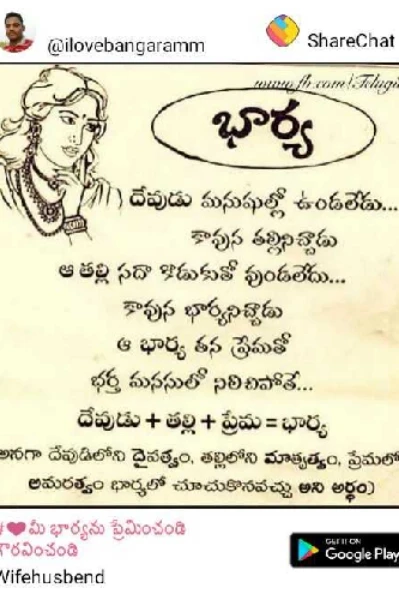 @ilovebangaramm
ShareChat
www.fb.com/Telugu
భార్య
దేవుడు మనుషుల్లో ఉండలేడు...
కావున తల్లినిచ్చాడు
ఆ తల్లి సదా కొడుకుతో వుండలేదు...
కావున భార్యనిచ్చాడు
ఆ భార్య తన ప్రేమతో
భర్త మనసులో నిలిచిపోతే...
దేవుడు + తల్లి + ప్రేమ = భార్య
అనగా దేవుడిలోని దైవత్వం, తల్లిలోని మాతృత్వం, ప్రేమలో
అమరత్వం భార్యలో చూచుకొనవచ్చు అని అర్థం)
#❤మీ భార్యను ప్రేమించండి
గౌరవించండి
GET IT ON
Google Play
Wifehusbend